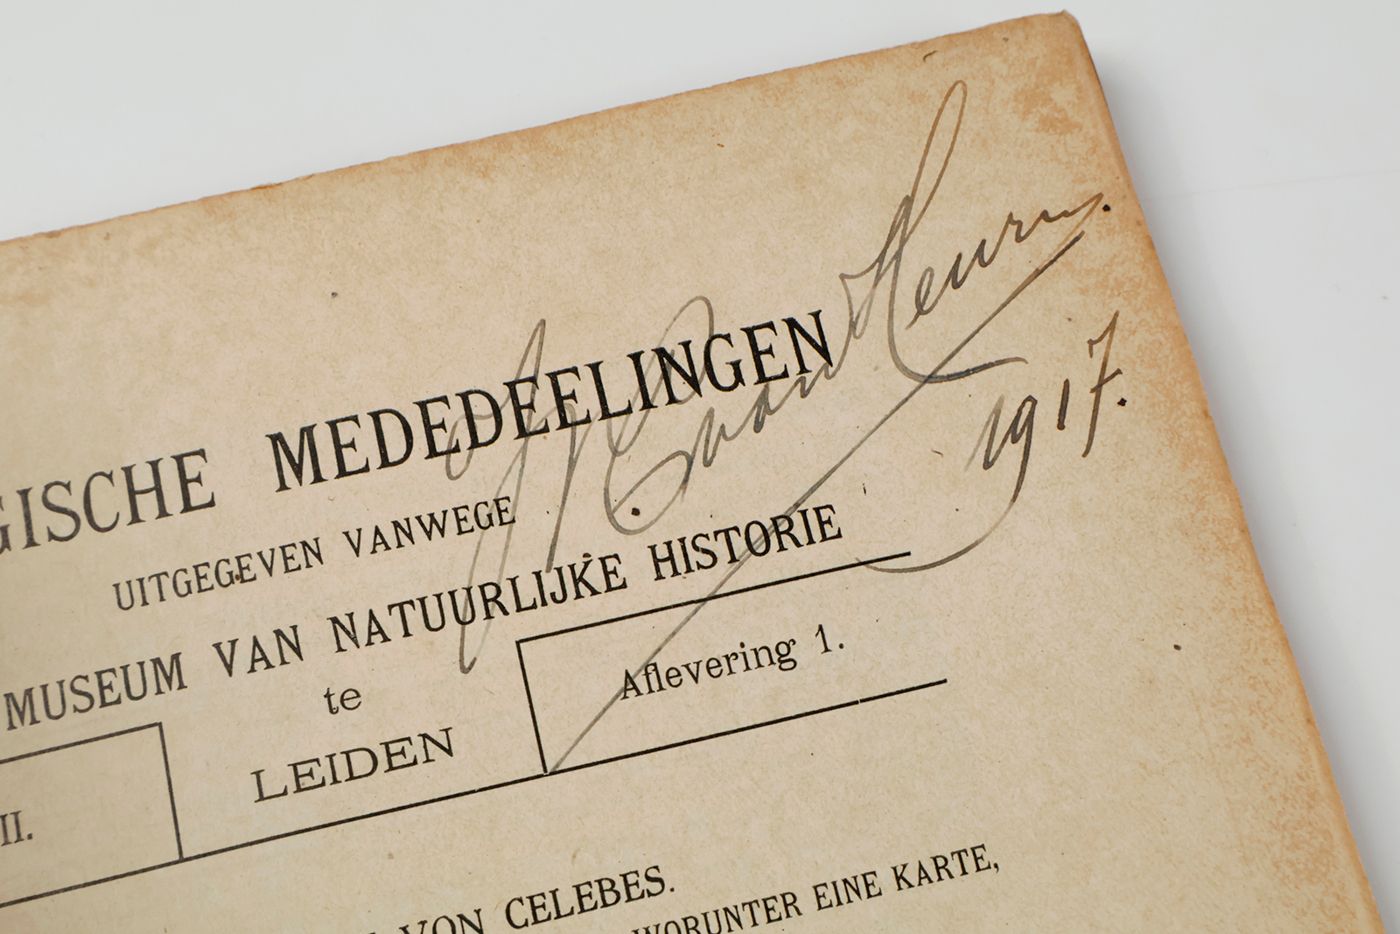 van Heurn.
1917.
GISCHE MEDEDEELINGEN
UITGEGEVEN VANWEGE
MUSEUM VAN NATUURLIJKE HISTORIE
te
LEIDEN
II.
Aflevering 1.
VON CELEBES.
WORUNTER EINE KARTE,